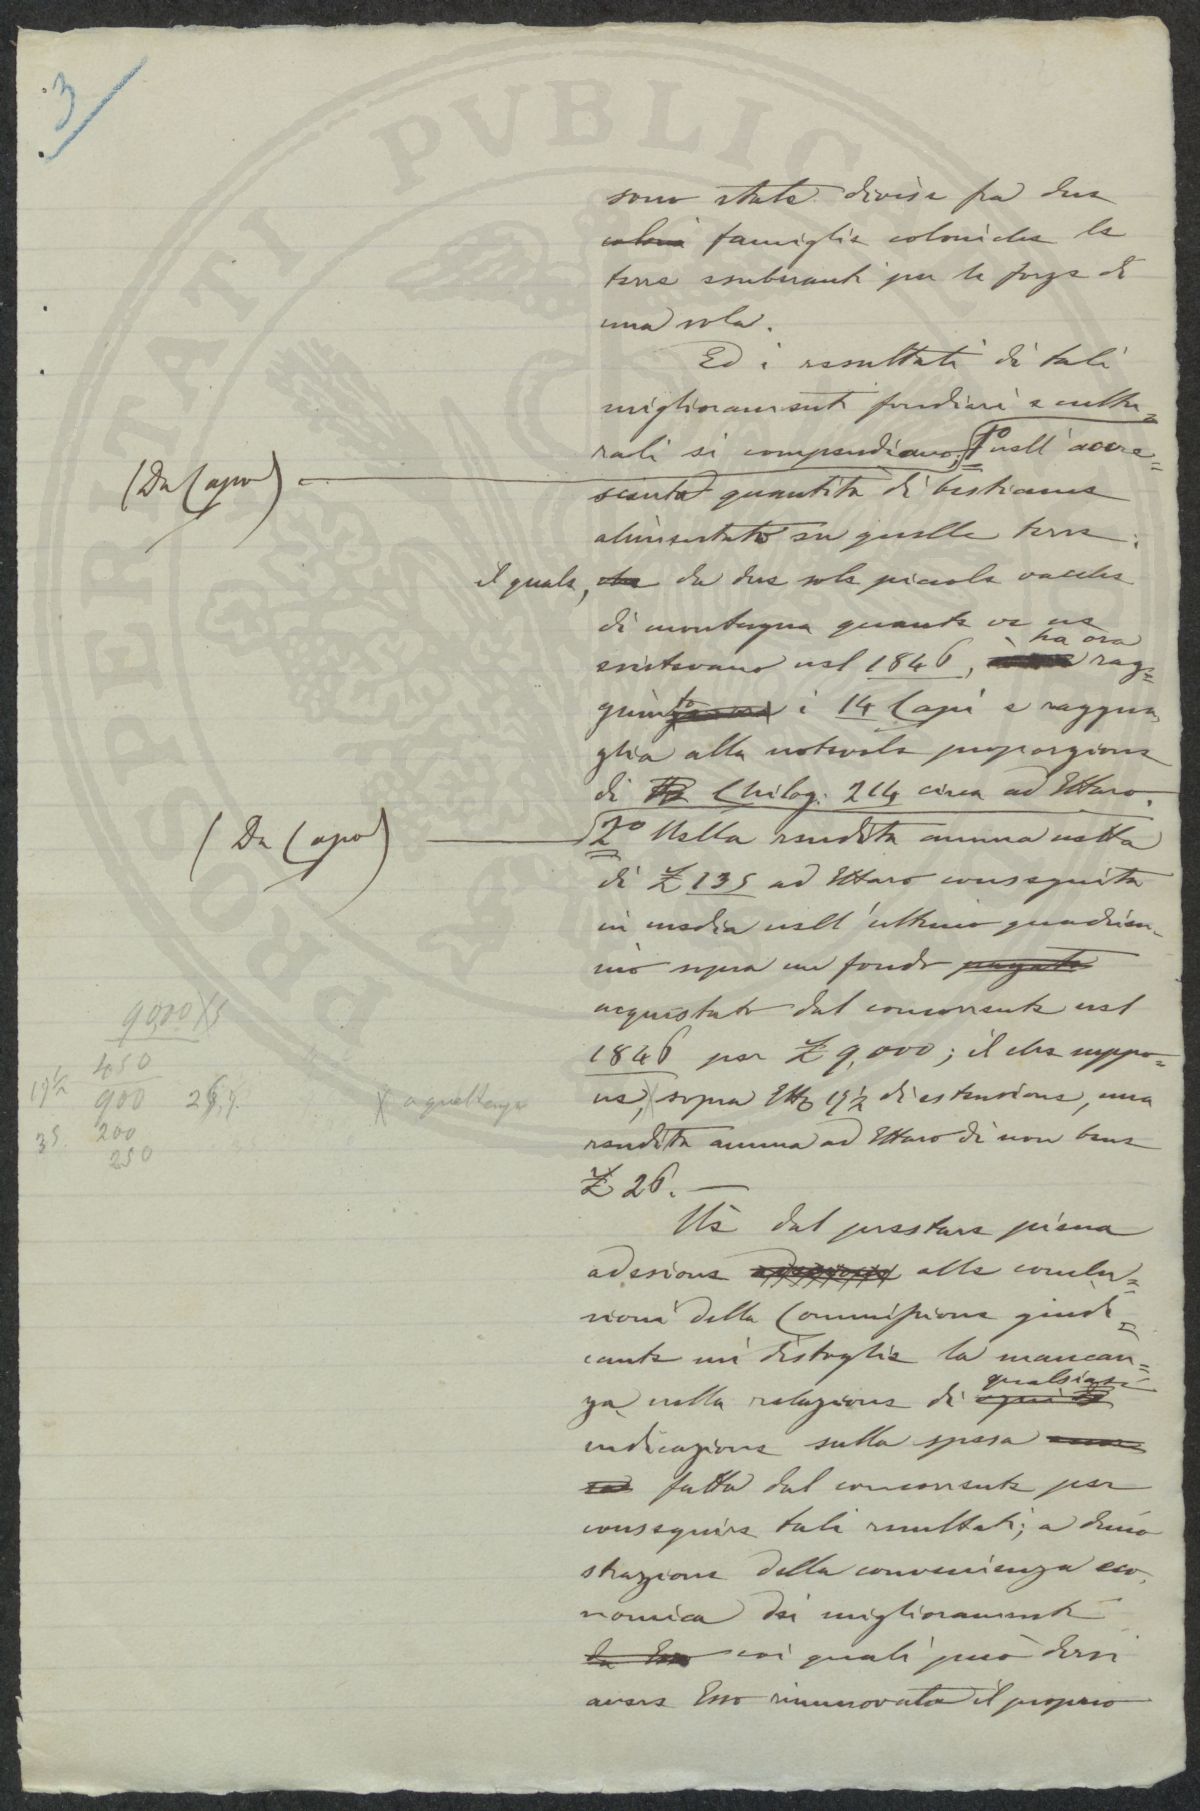 3
sono state divise fra due
coloni famiglie coloniche le
terre esuberanti per le forze di
una sola.
Ed i resultati di tali
miglioramenti fondiari e cultu=
rali si compendiano; 1º nell'accre=
(Da Capo)
sciuta quantità di bestiame
alimentato su quelle terre:
il quale, che da due sole piccole vacche
di montagna quante ve ne
ha ora
esistevano nel 1846, rag=
giunto i 14 Capi e raggua
glia alla notevole proporzione
di Chilog. 214 circa ad Ettaro.
(Da Capo)
2º Nella rendita annua netta
di £ 135 ad Ettaro conseguita
in media nell'ultimo quadrien-
nio sopra un fondo pagato
acquistato dal concorrente nel
1846 per £ 9,000; il che suppo=
ne, sopra Ett 19½ di estensione, una
rendita annua ad Ettaro di non bene
£ 26.—
9000 X 5
450
19½ 900 26,9.
35. 200
250
X a quell'epoca
Nè dal prestare piena
adesione alle conclu=
sioni della Commissione giudi=
cante mi distoglie la mancan=
qualsiasi
za nella relazione di ogni
indicazione sulla spesa
fatta dal concorrente per
conseguire tali resultati; a dimo
strazione della convenienza eco-
nomica dei miglioramenti
da Esso coi quali può dirsi
avere Esso rinnovato il proprio
PROPERTATI PVBLICAE